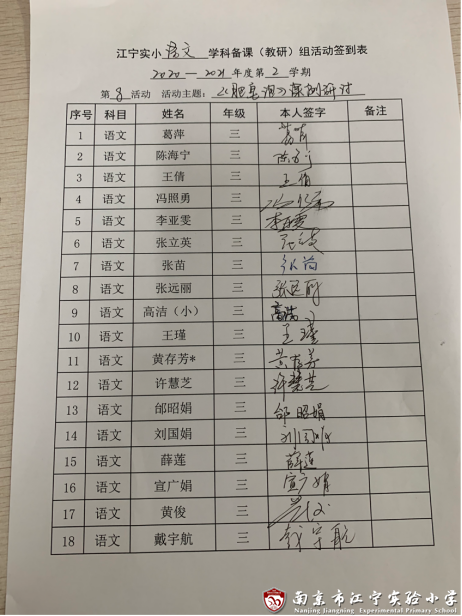 江宁实小 语文 学科备课（教研）组活动签到表
2020—2021年度第2学期
第8活动 活动主题：《肥皂泡》课例研讨
序号 科目 姓名 年级 本人签字 备注
1 语文 葛萍 三 葛萍
2 语文 陈海宁 三
3 语文 王倩 三 王倩
4 语文 冯照勇 三
5 语文 李亚雯 三 李亚雯
6 语文 张立英 三
7 语文 张苗 三 张苗
8 语文 张远丽 三 张远丽
9 语文 高洁（小） 三 高洁
10 语文 王瑾 三 王瑾
11 语文 黄存芳* 三 黄存芳
12 语文 许慧芝 三 许慧芝
13 语文 邰昭娟 三 邰昭娟
14 语文 刘国娟 三
15 语文 薛莲 三 薛莲
16 语文 宣广娟 三 宣广娟
17 语文 黄俊 三
18 语文 戴宇航 三 戴宇航
南京市江宁实验小学
Nanjing Jiangning Experimental Primary School